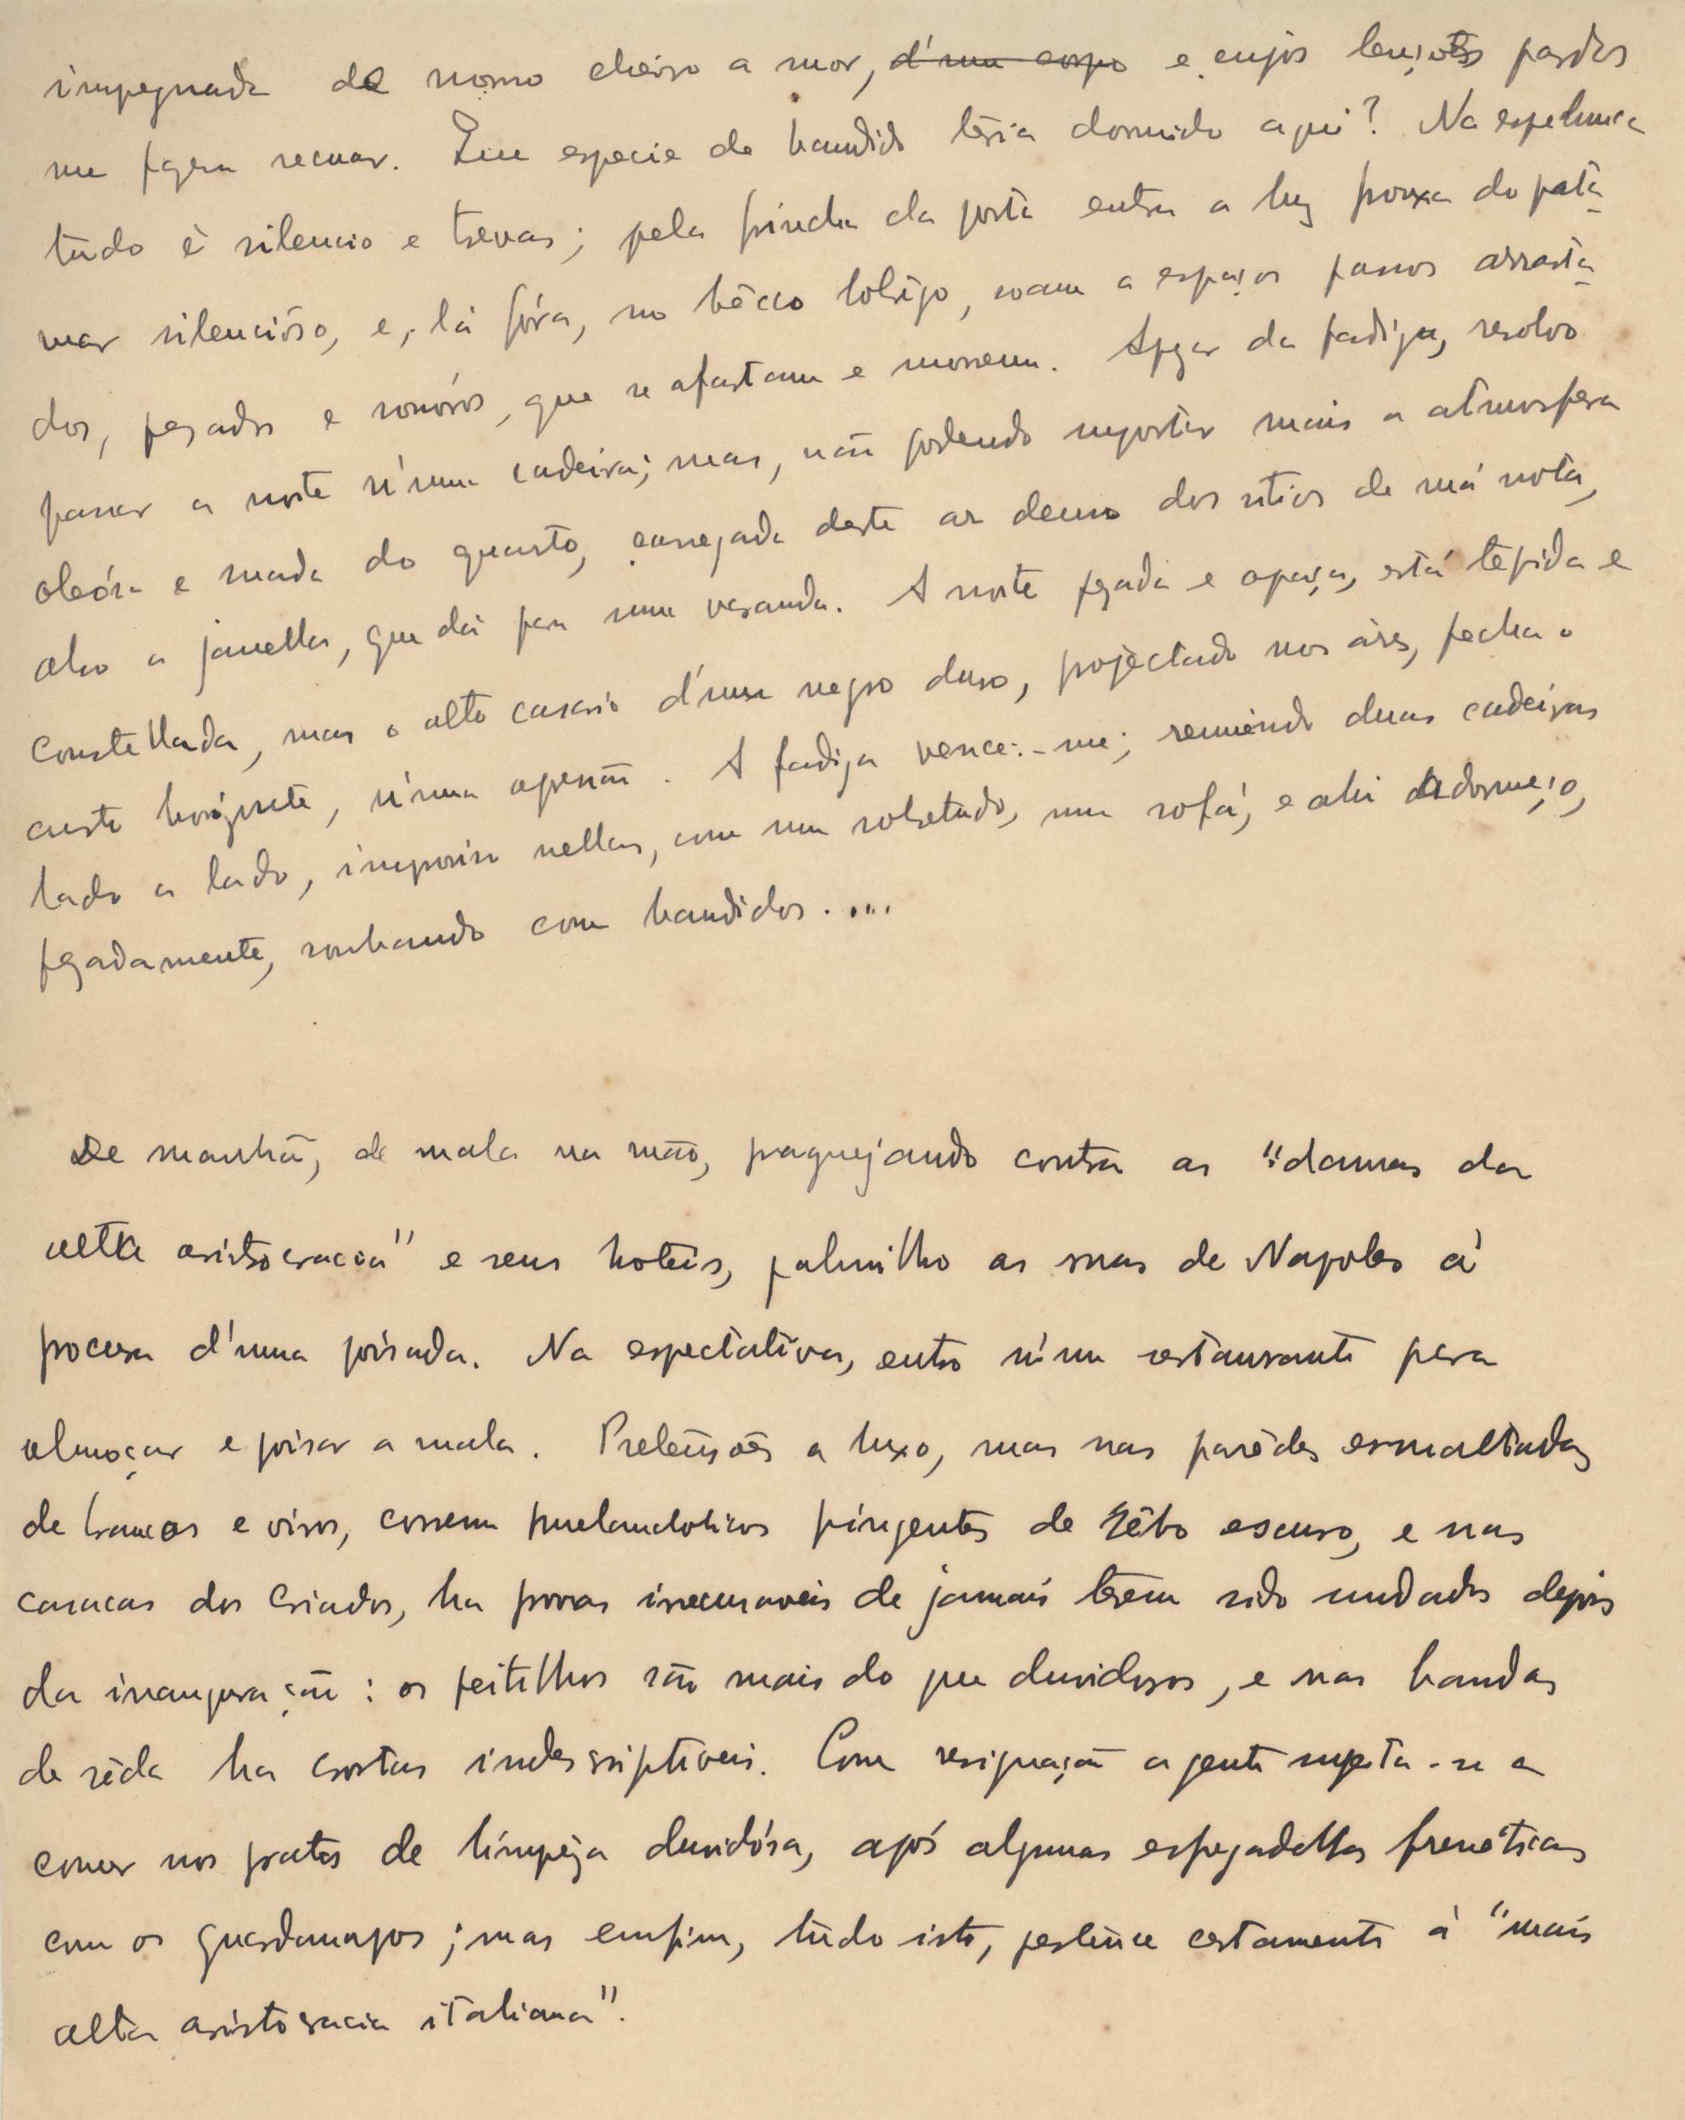 impregnada de morno cheiro a mor, d'um corpo e cujos lençoes pardos
me fazem recuar. Que especie de bandido teria dormido aqui? Na espelunca
tudo é silencio e trevas; pela frincha da porta entra a luz frouxa do pata-
mar silencióso, e, lá fóra, no bêcco lobrego, soam a espaços passos arrasta-
dos, pezados e sonóros, que se afastam e morrem. Apezar da fadiga, resolvo
passar a noite n'uma cadeira; mas, não podendo suportar mais a atmosfera
oleósa e suada do quarto, carregada deste ar denso dos sitios de má nota,
abro a janella, que dá para uma varanda. A noite pezada e opaca, está tepida e
constellada, mas o alto casario d'um negro duro, projectado nos áres, fecha o
curto horizonte, n'uma opressão. A fadiga vence-me; reunindo duas cadeiras
lado a lado, improviso nellas, com um sobretudo, um sofá, e ahi adormeço,
pezadamente, sonhando com bandidos....
De manhã, de mala na mão, praguejando contra as "damas da
alta aristocracia" e seus hoteis, palmilho as ruas de Napoles á
procura d'uma poisada. Na espectativa, entro n'um restaurante para
almoçar e poisar a mala. Pretensões a luxo, mas nas parêdes esmaltadas
de brancos e oiros, correm melancolicos pingentes de sêbo escuro, e nas
casacas dos criados, ha provas irrecusaveis de jamais terem sido mudadas depois
da inauguração: os peitilhos são mais do que duvidosos, e nas bandas
de sêda ha crostas indescriptiveis. Com resignação a gente sugeita-se a
comer nos pratos de limpêza duvidósa, após algumas esfregadellas frenéticas
com os guardanapos; mas emfim, tudo isto, pertence certamente á "mais
alta aristocracia italiana".